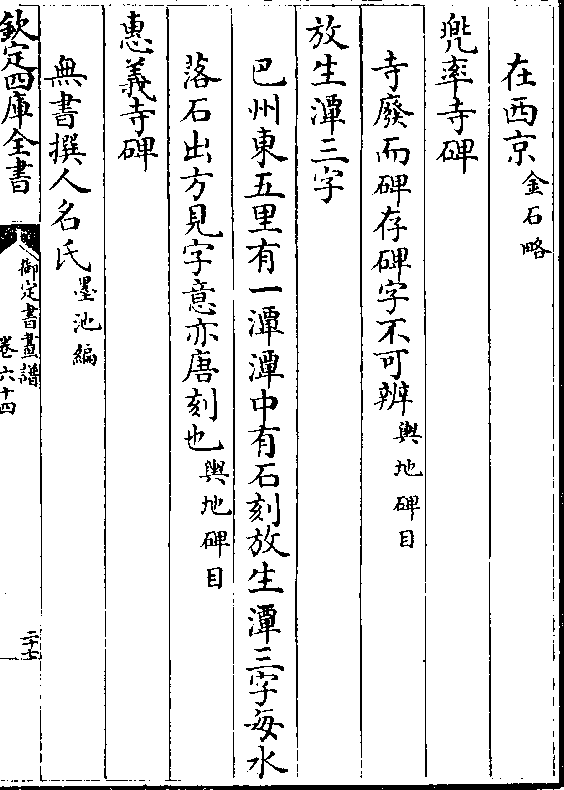 在西京金石略
兜率寺碑
寺廢而碑存碑字不可辨輿地碑目
放生潭三字
巴州東五里有一潭潭中有石刻放生潭三字每水
落石出方見字意亦唐刻也輿地碑目
惠義寺碑
無書撰人名氏墨池編
欽定四庫全書
御定書畫譜
卷六十四
二十七